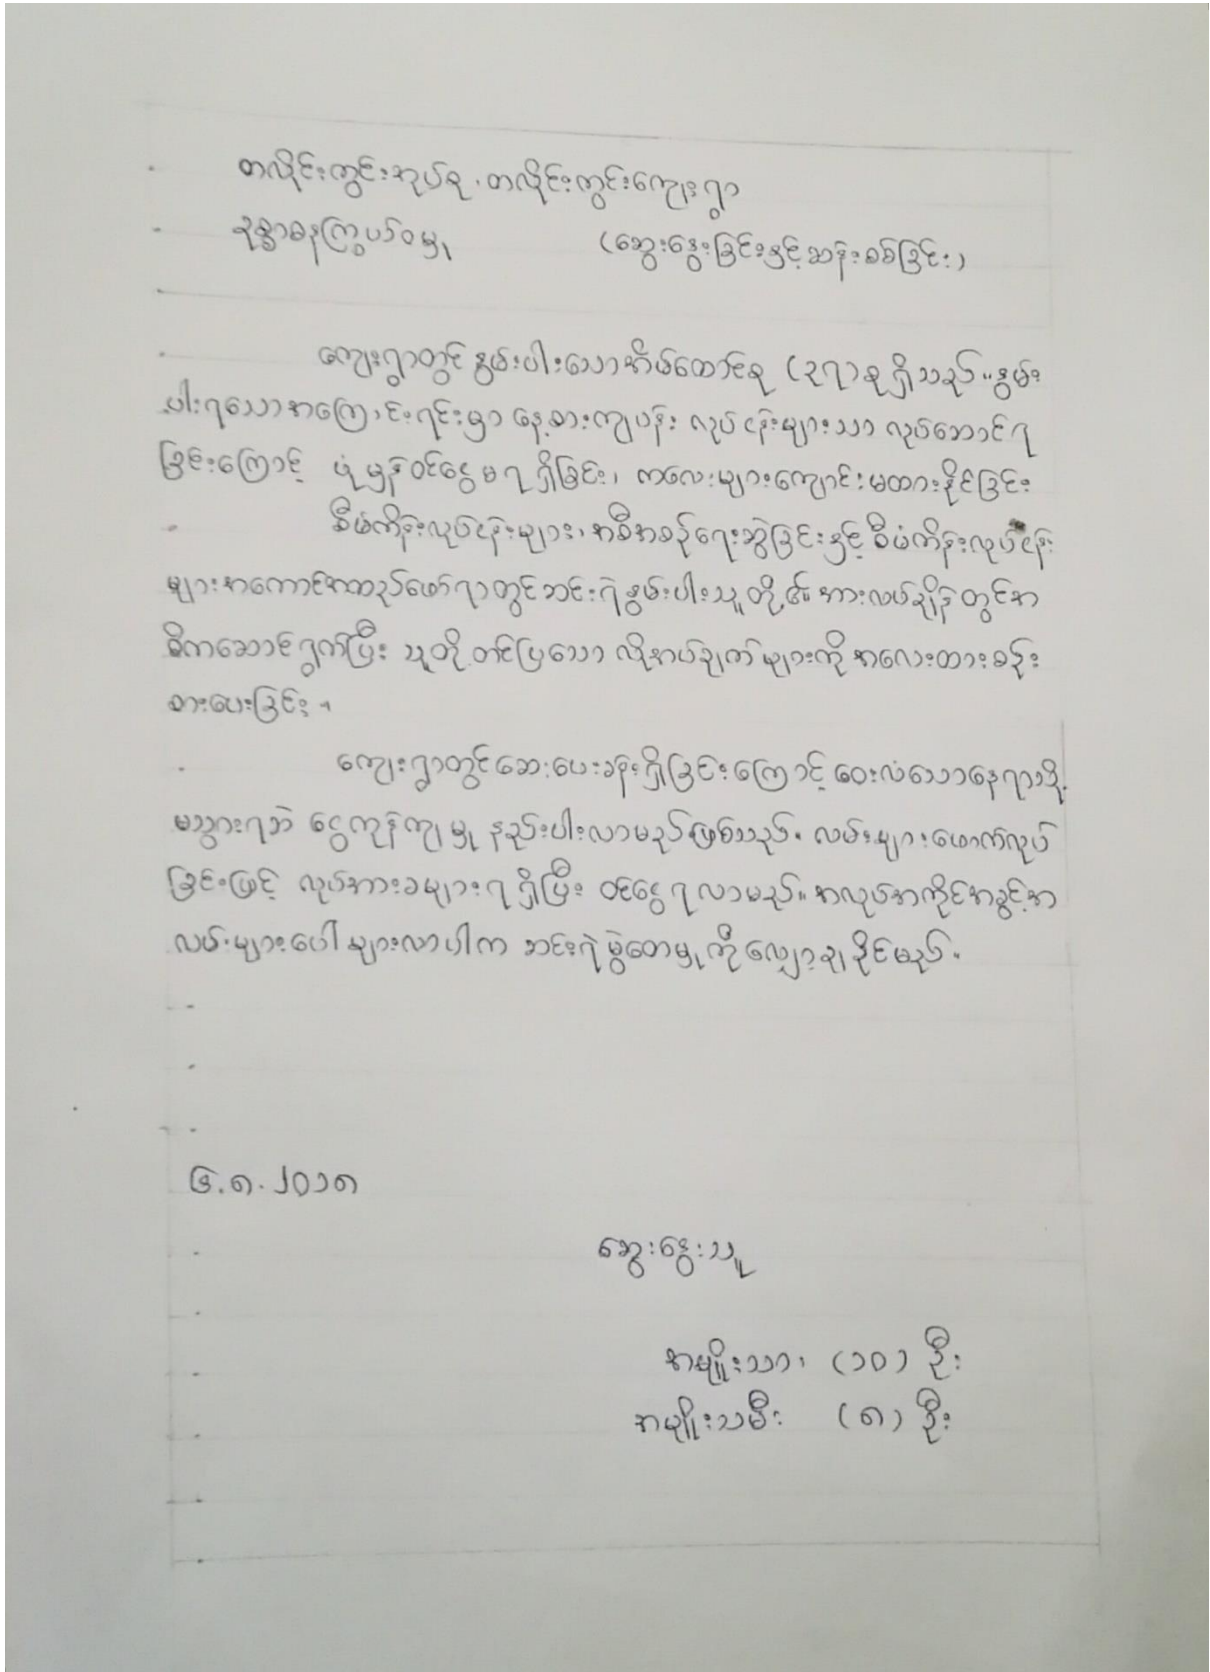 တလိုင်းကွင်းအုပ်စု၊ တလိုင်းကွင်းကျေးရွာ
ဥစ္စာဓနကြွယ်ဝမှု (ဆွေးနွေးခြင်းနှင့်ဆန်းစစ်ခြင်း)
ကျေးရွာတွင် နွမ်းပါးသောအိမ်ထောင်စု (၃၇) စု ရှိသည်။ နွမ်း
ပါးရသောအကြောင်းရင်းမှာ နေ့စားကျပန်း လုပ်ငန်းများသာ လုပ်ဆောင်ရ
ခြင်းကြောင့် ပုံမှန်ဝင်ငွေမရရှိခြင်း၊ ကလေးများကျောင်းမထားနိုင်ခြင်း
စီမံကိန်းလုပ်ငန်းများ၊ အစီအစဉ်ရေးဆွဲခြင်းနှင့် စီမံကိန်းလုပ်ငန်း
များအကောင်အထည်ဖော်ရာတွင်ဆင်းရဲနွမ်းပါးသူတို့၏ အားလပ်ချိန်တွင်အ
ဓိကဆောင်ရွက်ပြီး သူတို့တင်ပြသော လိုအပ်ချက်များကိုအလေးထားစဉ်း
စားပေးခြင်း၊
ကျေးရွာတွင်ဆေးပေးခန်းရှိခြင်းကြောင့် ဝေးလံသောနေရာသို့
မသွားရဘဲ ငွေကုန်ကျမှု နည်းပါးလာမည်ဖြစ်သည်။ လမ်းများဖောက်လုပ်
ခြင်းဖြင့် လုပ်အားခများရရှိပြီး ဝင်ငွေရလာမည်။ အလုပ်အကိုင်အခွင့်အ
လမ်းများပေါများလာပါက ဆင်းရဲမွဲတေမှုကိုလျှော့ချနိုင်မည်။
၆.၈.၂၀၁၈
ဆွေးနွေးသူ
အမျိုးသား (၁၀) ဦး
အမျိုးသမီး (၈) ဦး